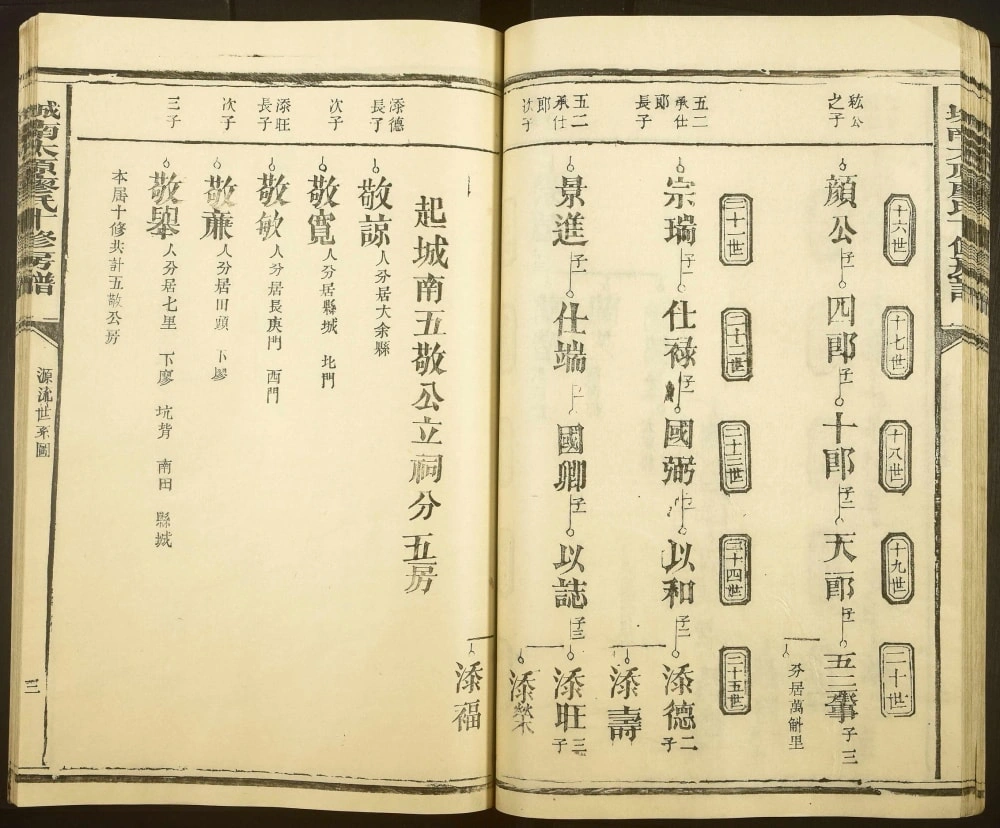 十六世
十七世
十八世
十九世
二十世
紘公
之子
顔公子一
四郎子一
十郎子二
天一郎子一
五二肇子三
分居萬斛里
二十一世
二十二世
二十三世
二十四世
二十五世
五二
承仕
郎
長子
宗瑞子一
仕祿子一
國弼
以和子二
添德二子
添壽
五二
承仕
郎
次子
景進子一
仕端子一
國卿子一
以誌子三
添旺三子
添榮
添福
起城南五敬公立祠分五房
添德
長子
敬諒人分居大余縣
次子
敬寬人分居縣城 北門
添旺
長子
敬敏人分居長庚門 西門
次子
敬廉人分居田頭 下廖
三子
敬舉人分居七里 下廖 坑背 南田 縣城
本届十修共計五敬公房
城南太原廖氏十修房譜
源流世系圖
三